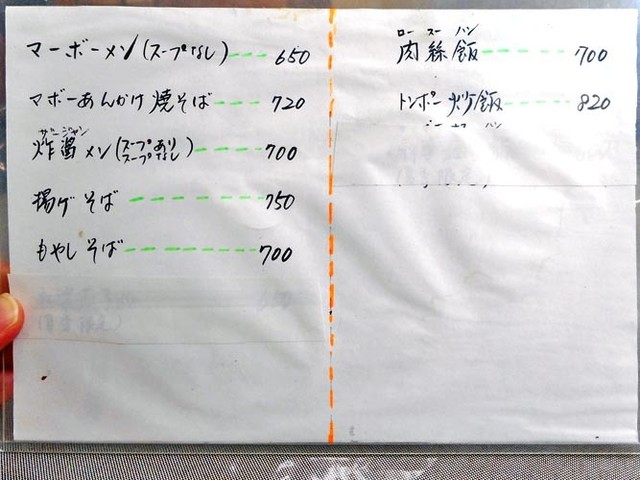 マーボーメン(スープなし) 650
マボーあんかけ焼そば 720
ザージャン
炸醤メン(スープあり スープなし) 700
揚げそば 750
もやしそば 700
ロースーハン
肉絲飯 700
トンポー炒飯 820